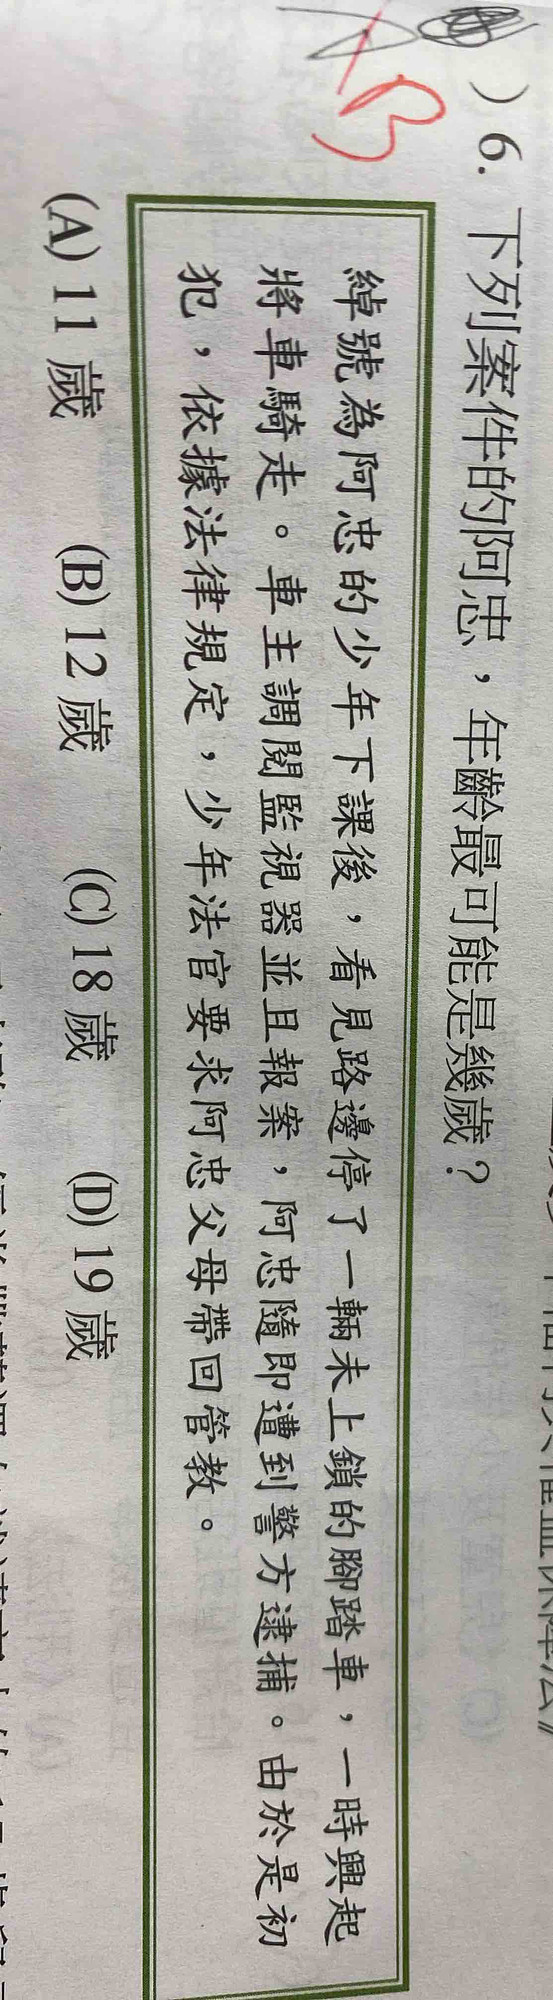 B
)6. 下列案件的阿忠，年齡最可能是幾歲？
綽號為阿忠的少年下課後，看見路邊停了一輛未上鎖的腳踏車，一時興起
將車騎走。車主調閱監視器並且報案，阿忠隨即遭到警方逮捕。由於是初
犯，依據法律規定，少年法官要求阿忠父母帶回管教。
(A) 11 歲 (B) 12 歲 (C) 18 歲 (D) 19 歲